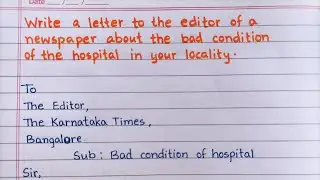 Date ___/___/___
Write a letter to the editor of a
newspaper about the bad condition
of the hospital in your locality.
To
The Editor,
The Karnataka Times,
Bangalore
Sub : Bad condition of hospital
Sir,